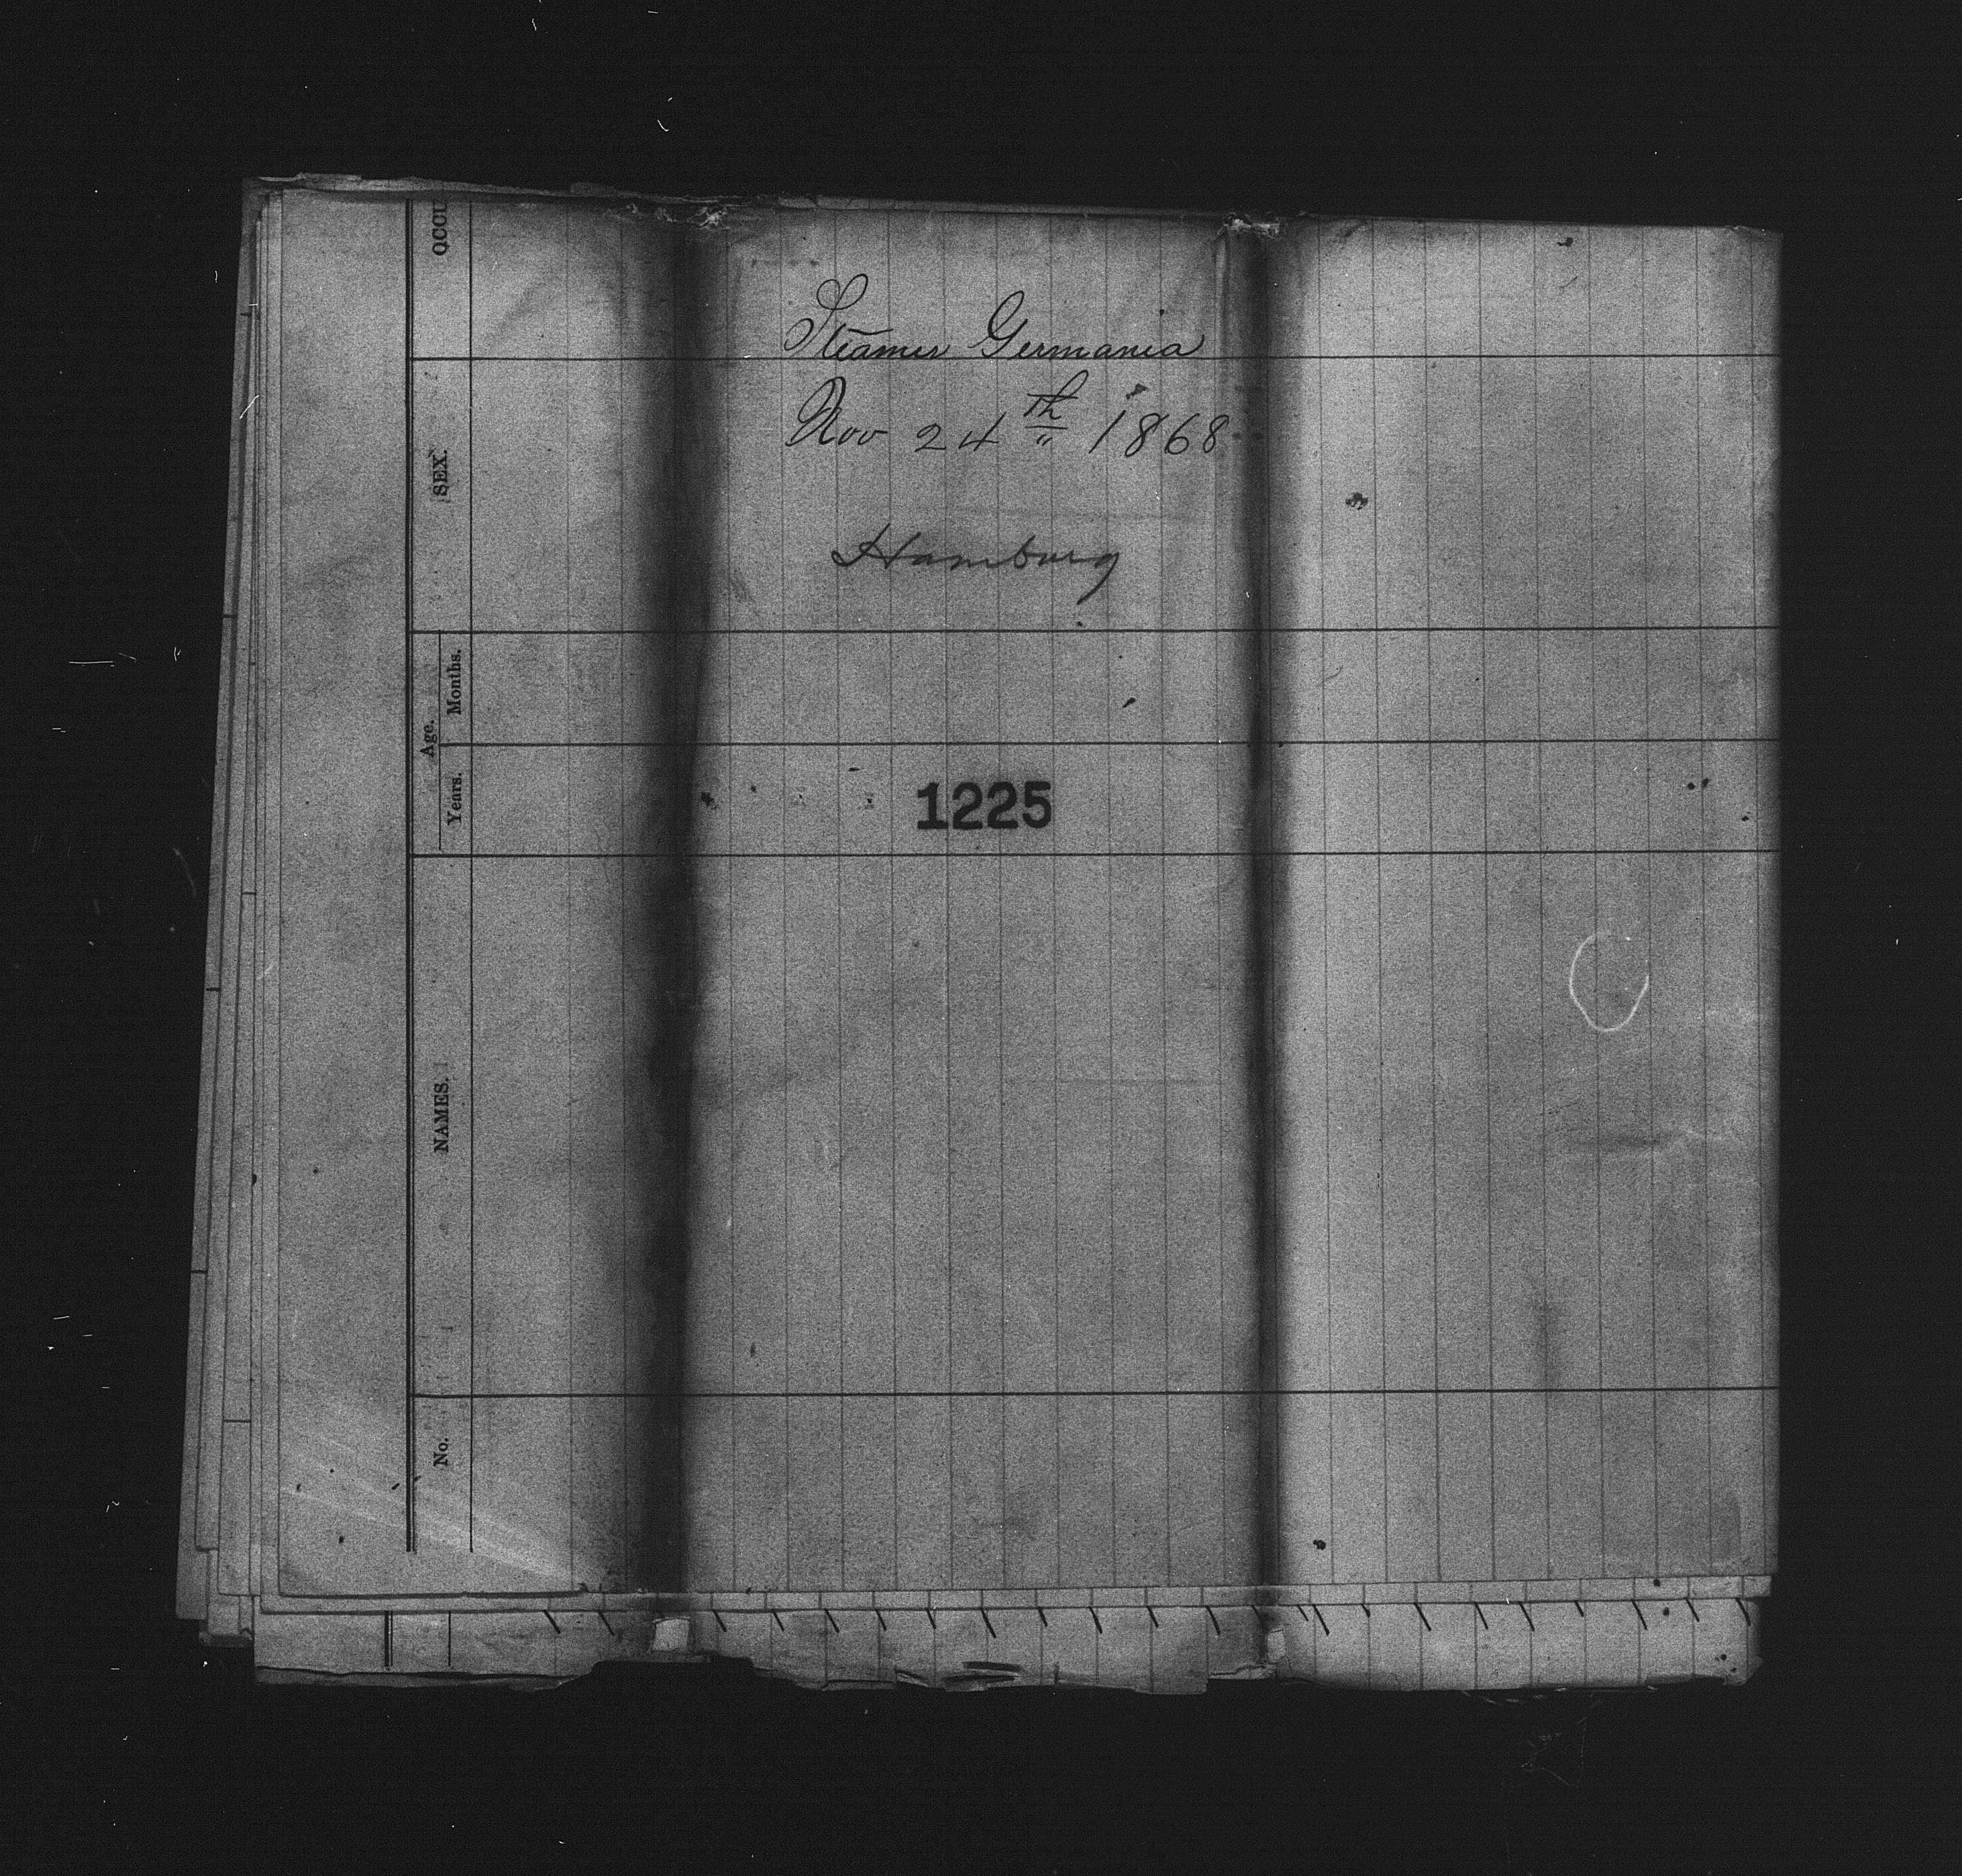 Steamer Germania
Nov 24th 1868
Hamburg
1225
OCCU
SEX.
Age.
Months.
Years.
NAMES.
No.